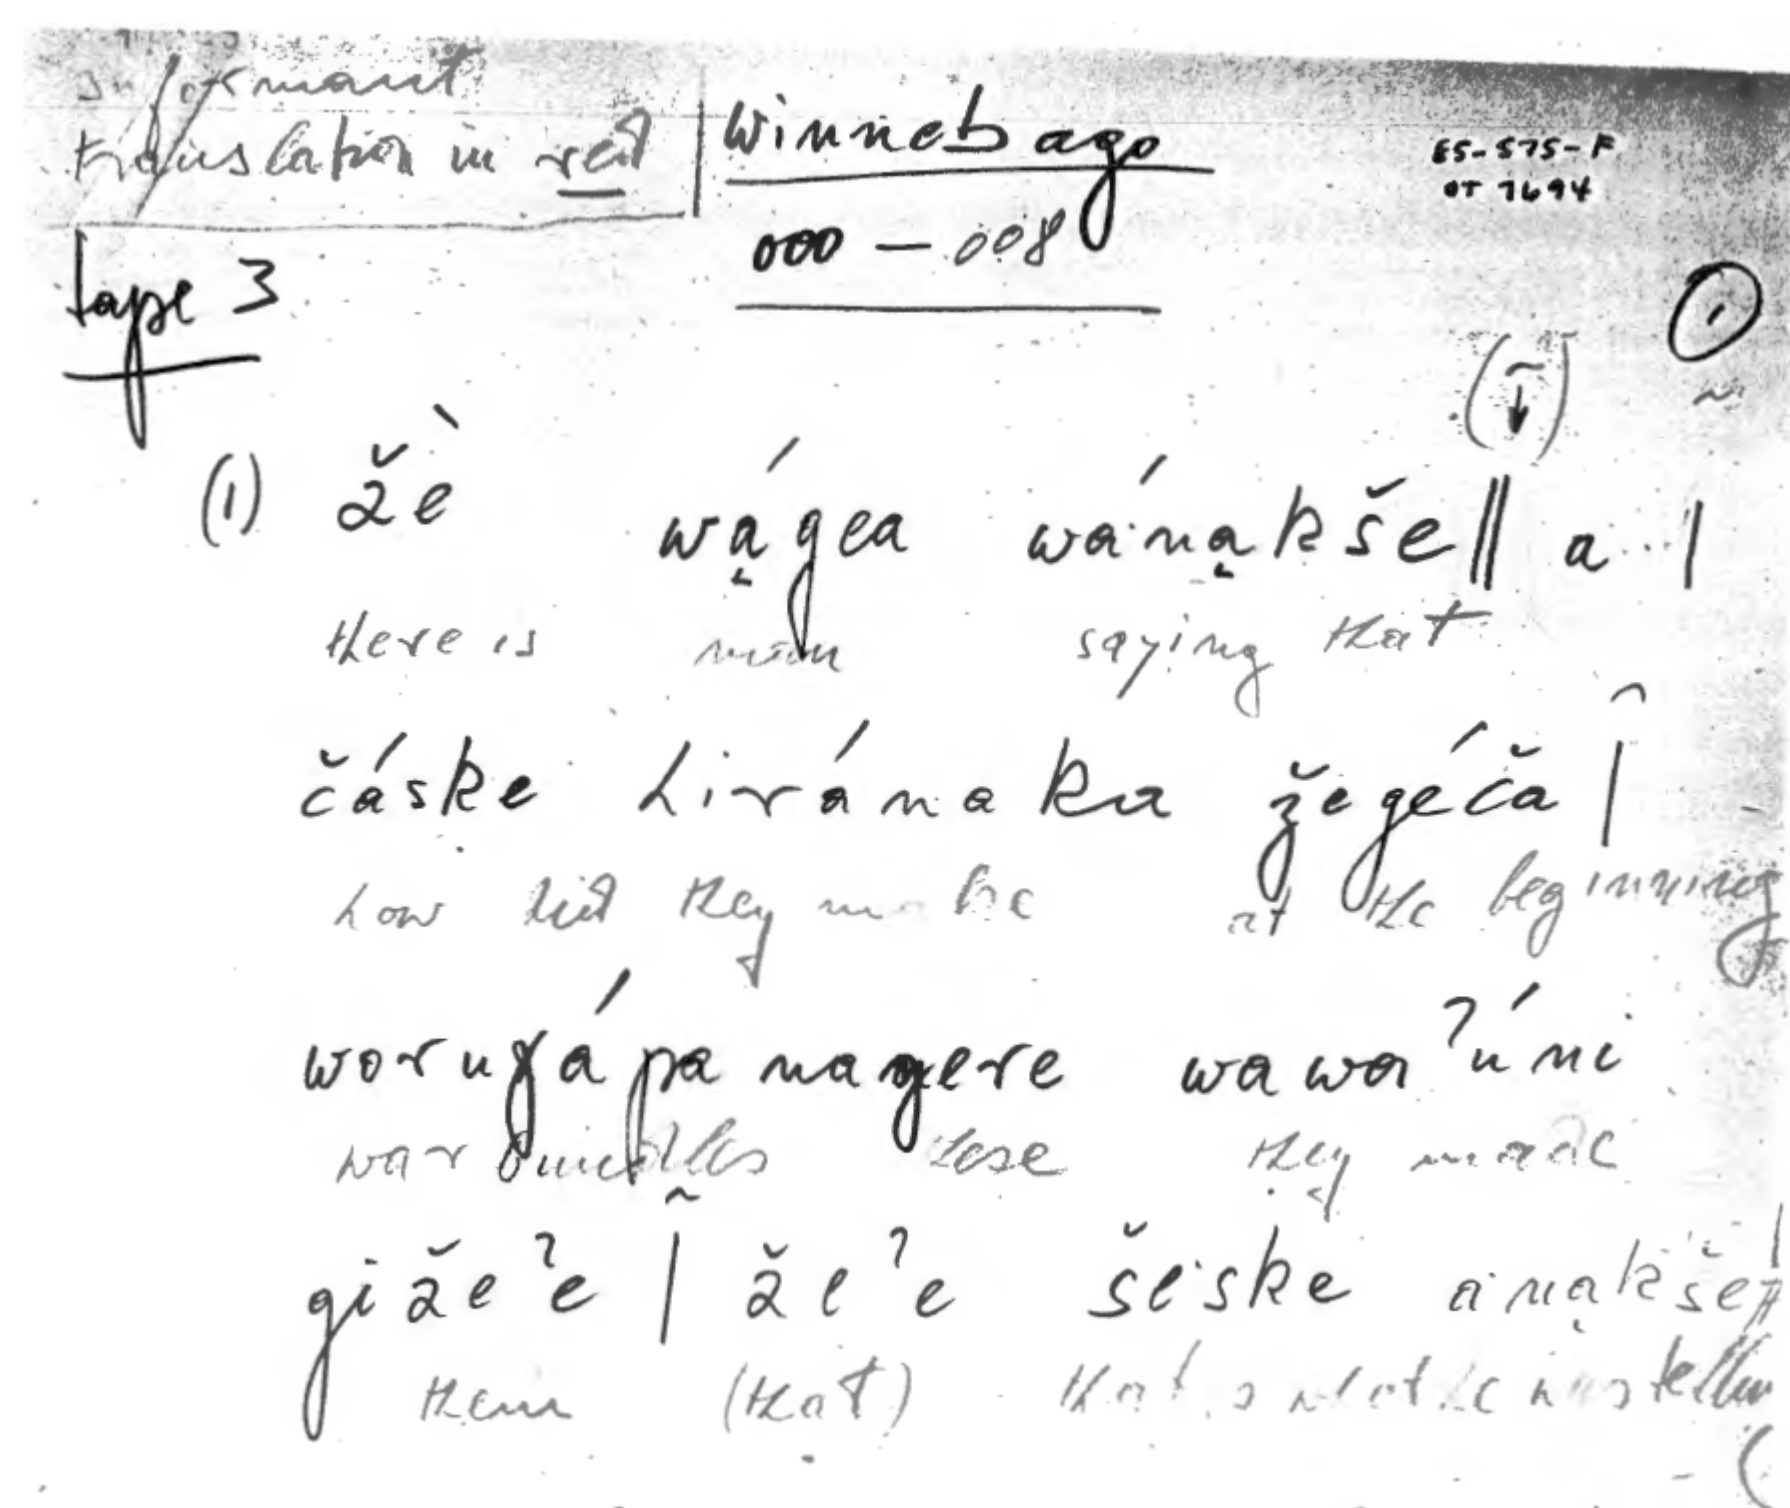 Informant
translation in red
Winnebago
ES-575-F
OT 7694
000 — 008
tape 3
1
(1) žè wą́gea wá·nąkše || a · · |
there is man saying that
čáske hiránaka žegéča |
how did they make at the beginning
woruɣápanagere wawaʔúni
war bundles these they made
gižeʔe | žeʔe še·ske a·nąkše
them (that) that's what he was tellin